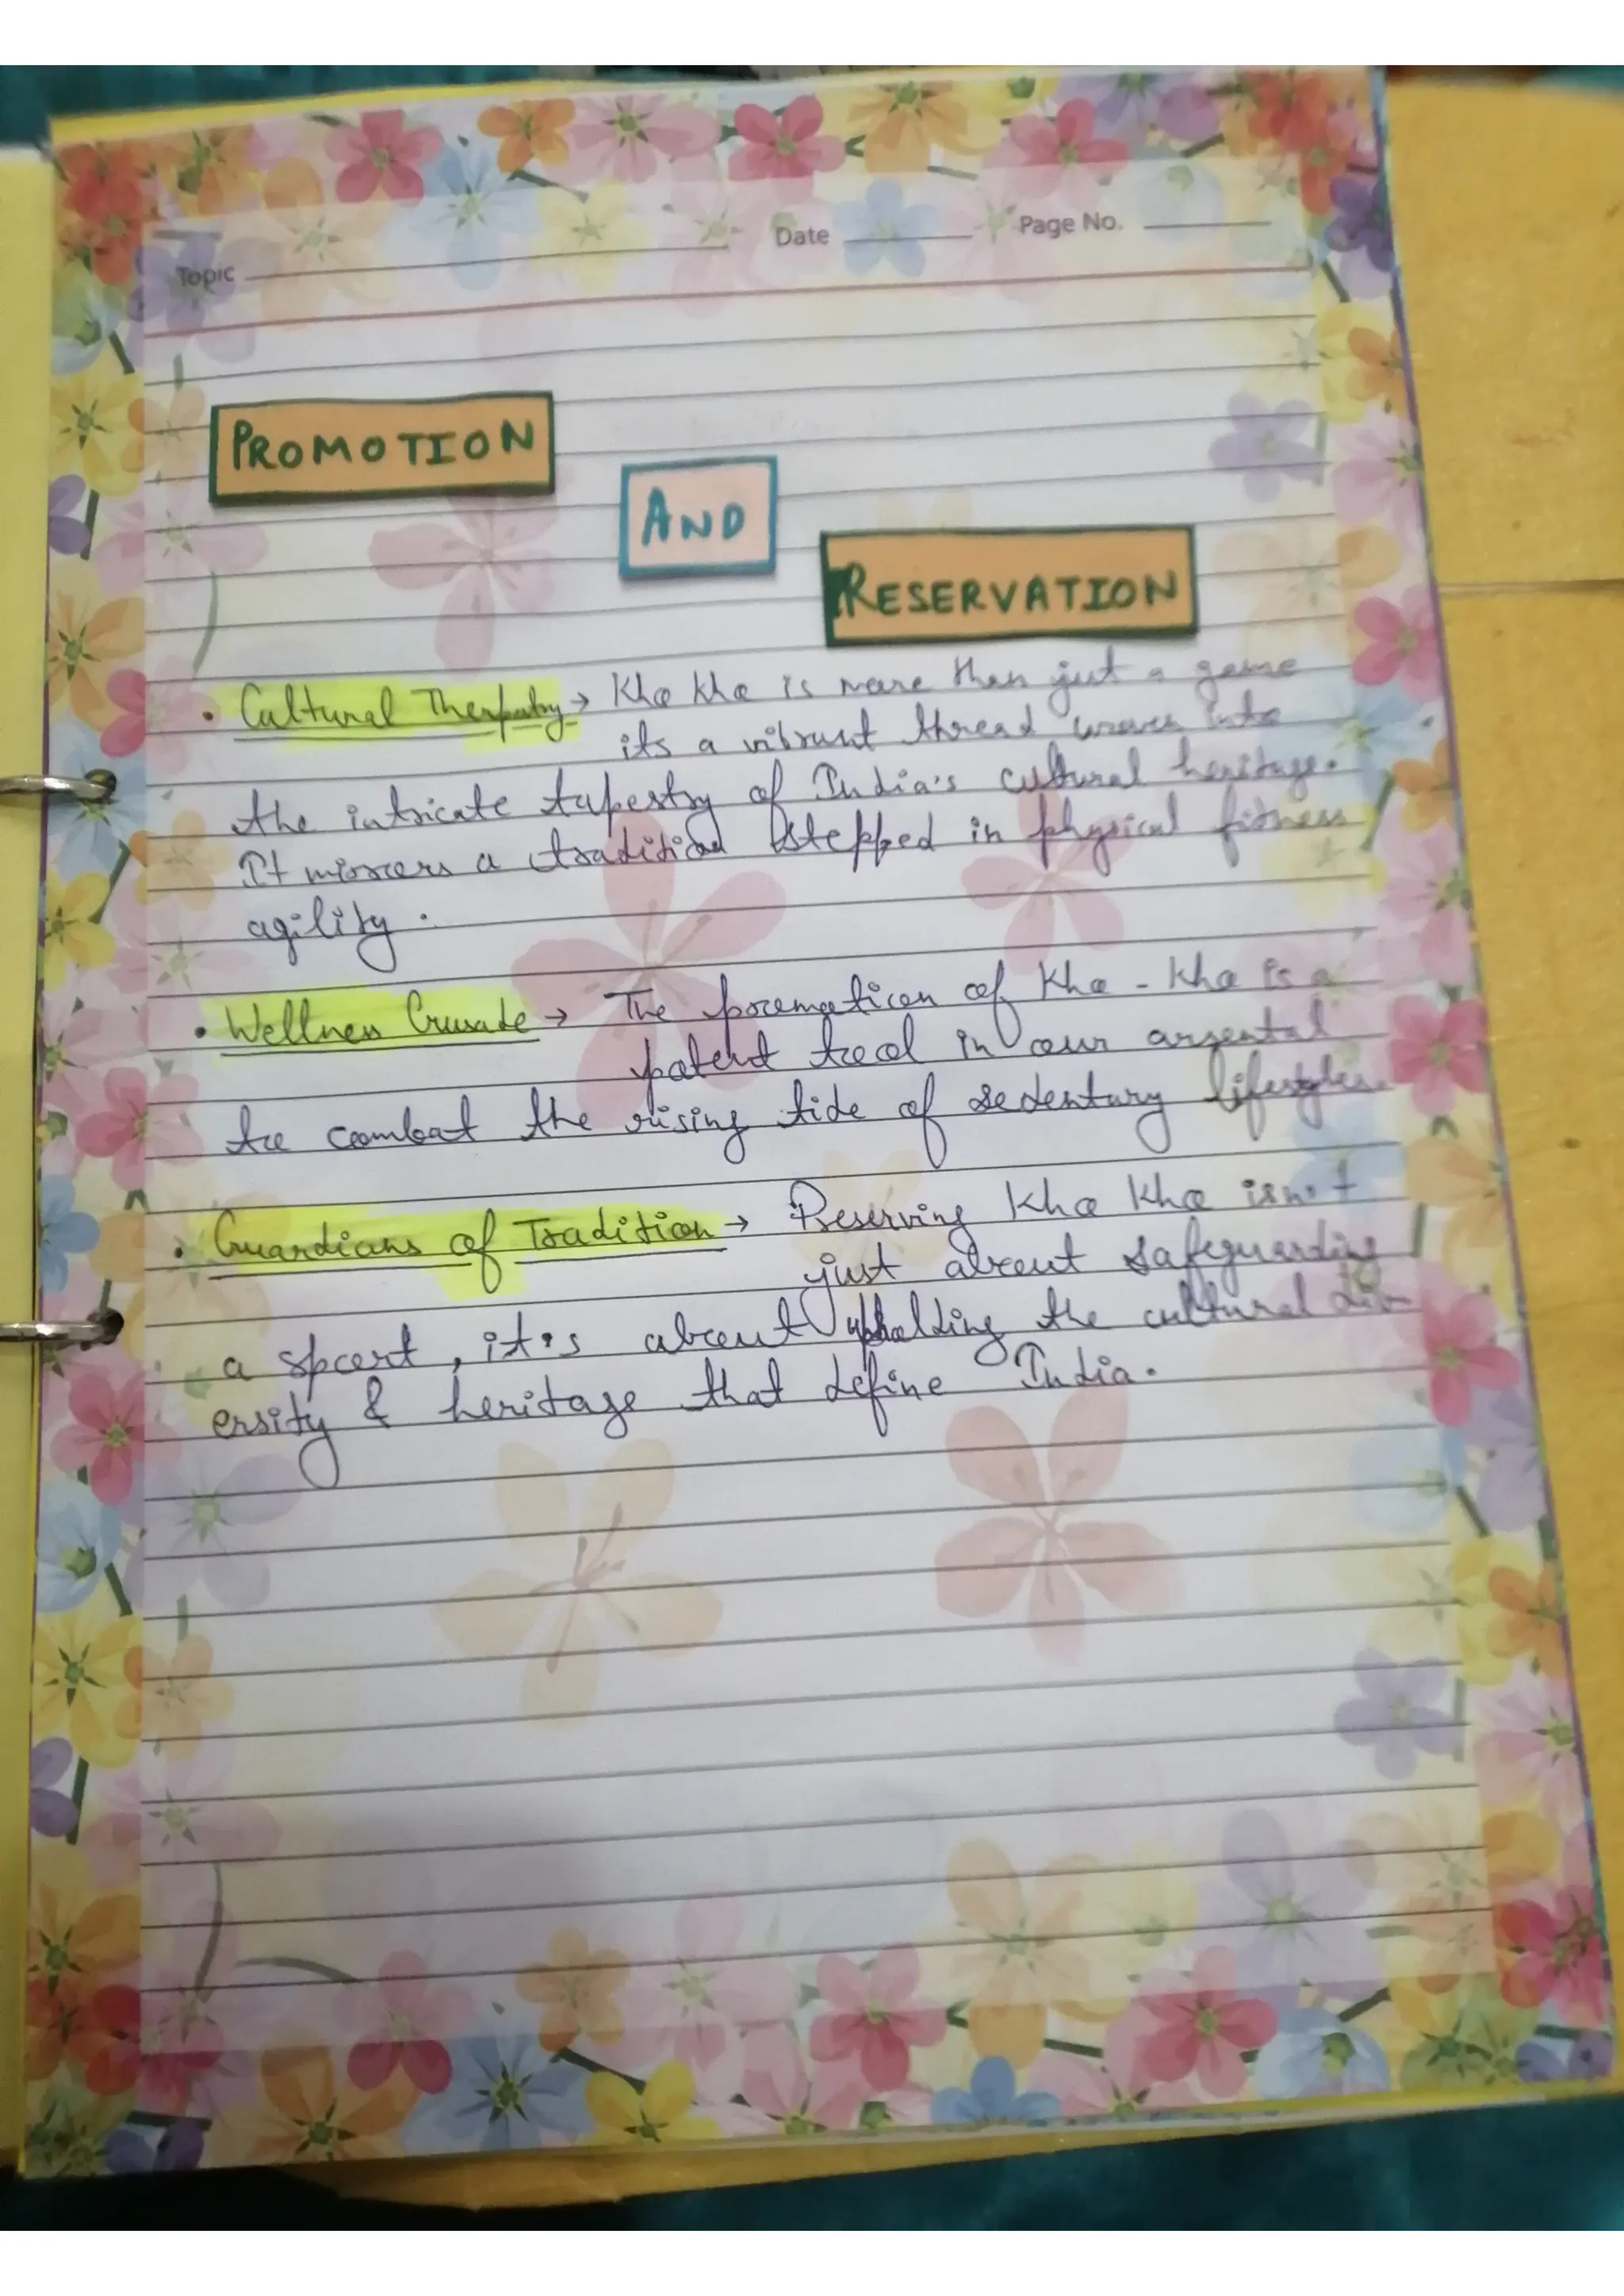 Topic Date Page No.
PROMOTION
AND
RESERVATION
• Cultural → Kho Kho is more than just a game
its a vibrant thread woven into
the intricate tapestry of India's cultural heritage.
It mirrors a tradition stepped in physical fitness
agility.
• Wellness Crusade → The promotion of Kho - Kho is a
patent tool in our arsental
to combat the rising tide of sedentary lifestyles.
• Guardians of Tradition → Reserving Kho Kho isn't
just about safeguarding
a sport, it's about upholding the cultural div-
ersity & heritage that define India.